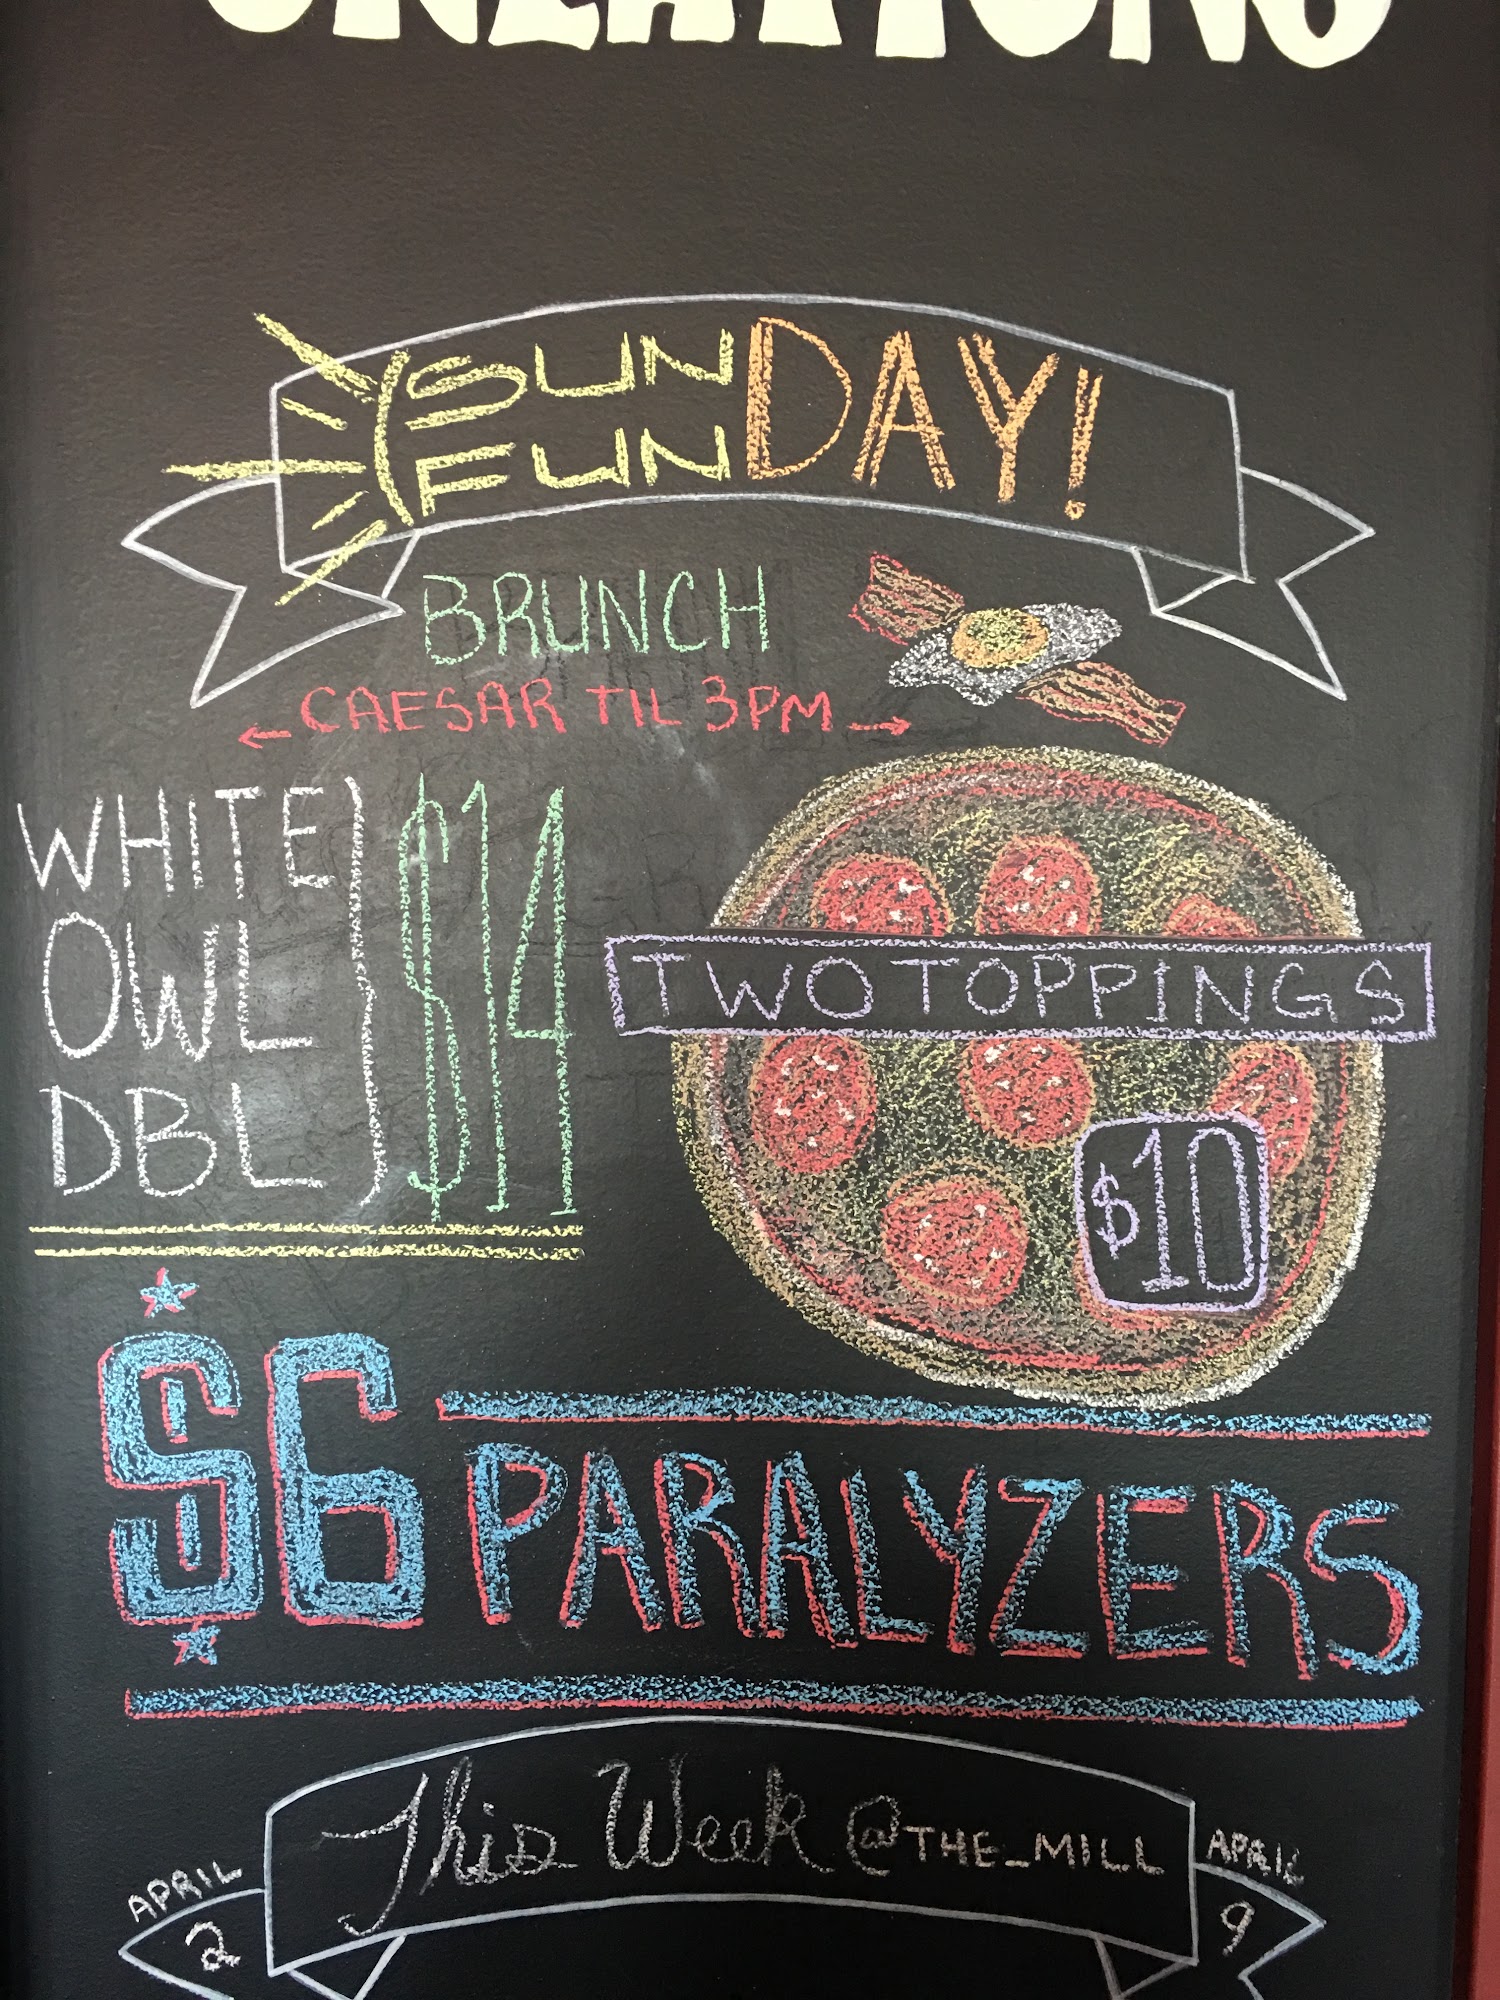 SUN
FUN DAY!
BRUNCH
← CAESAR TIL 3PM →
WHITE
OWL
DBL
$14
TWO TOPPINGS
$10
$6 PARALYZERS
This Week @THE_MILL
APRIL
2
APRIL
9